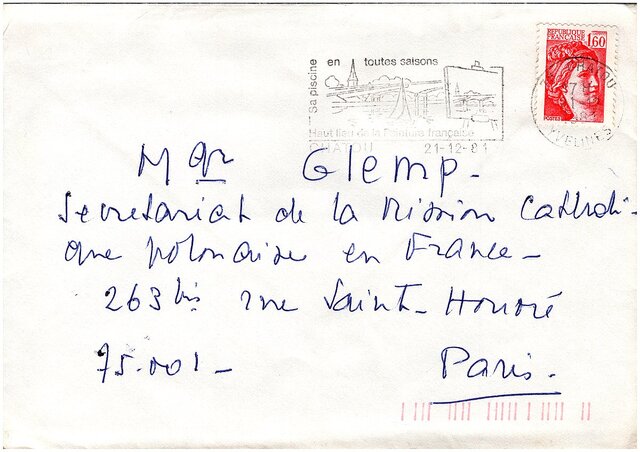 RÉPUBLIQUE FRANÇAISE 1,60
POSTES
Sa piscine en toutes saisons
Haut lieu de la Peinture française
CHATOU 21-12-81
CHATOU
YVELINES
Mgr Glemp.
Secretariat de la Mission Catholi-
que polonaise en France -
263 bis rue Saint-Honoré
75.001 - Paris.